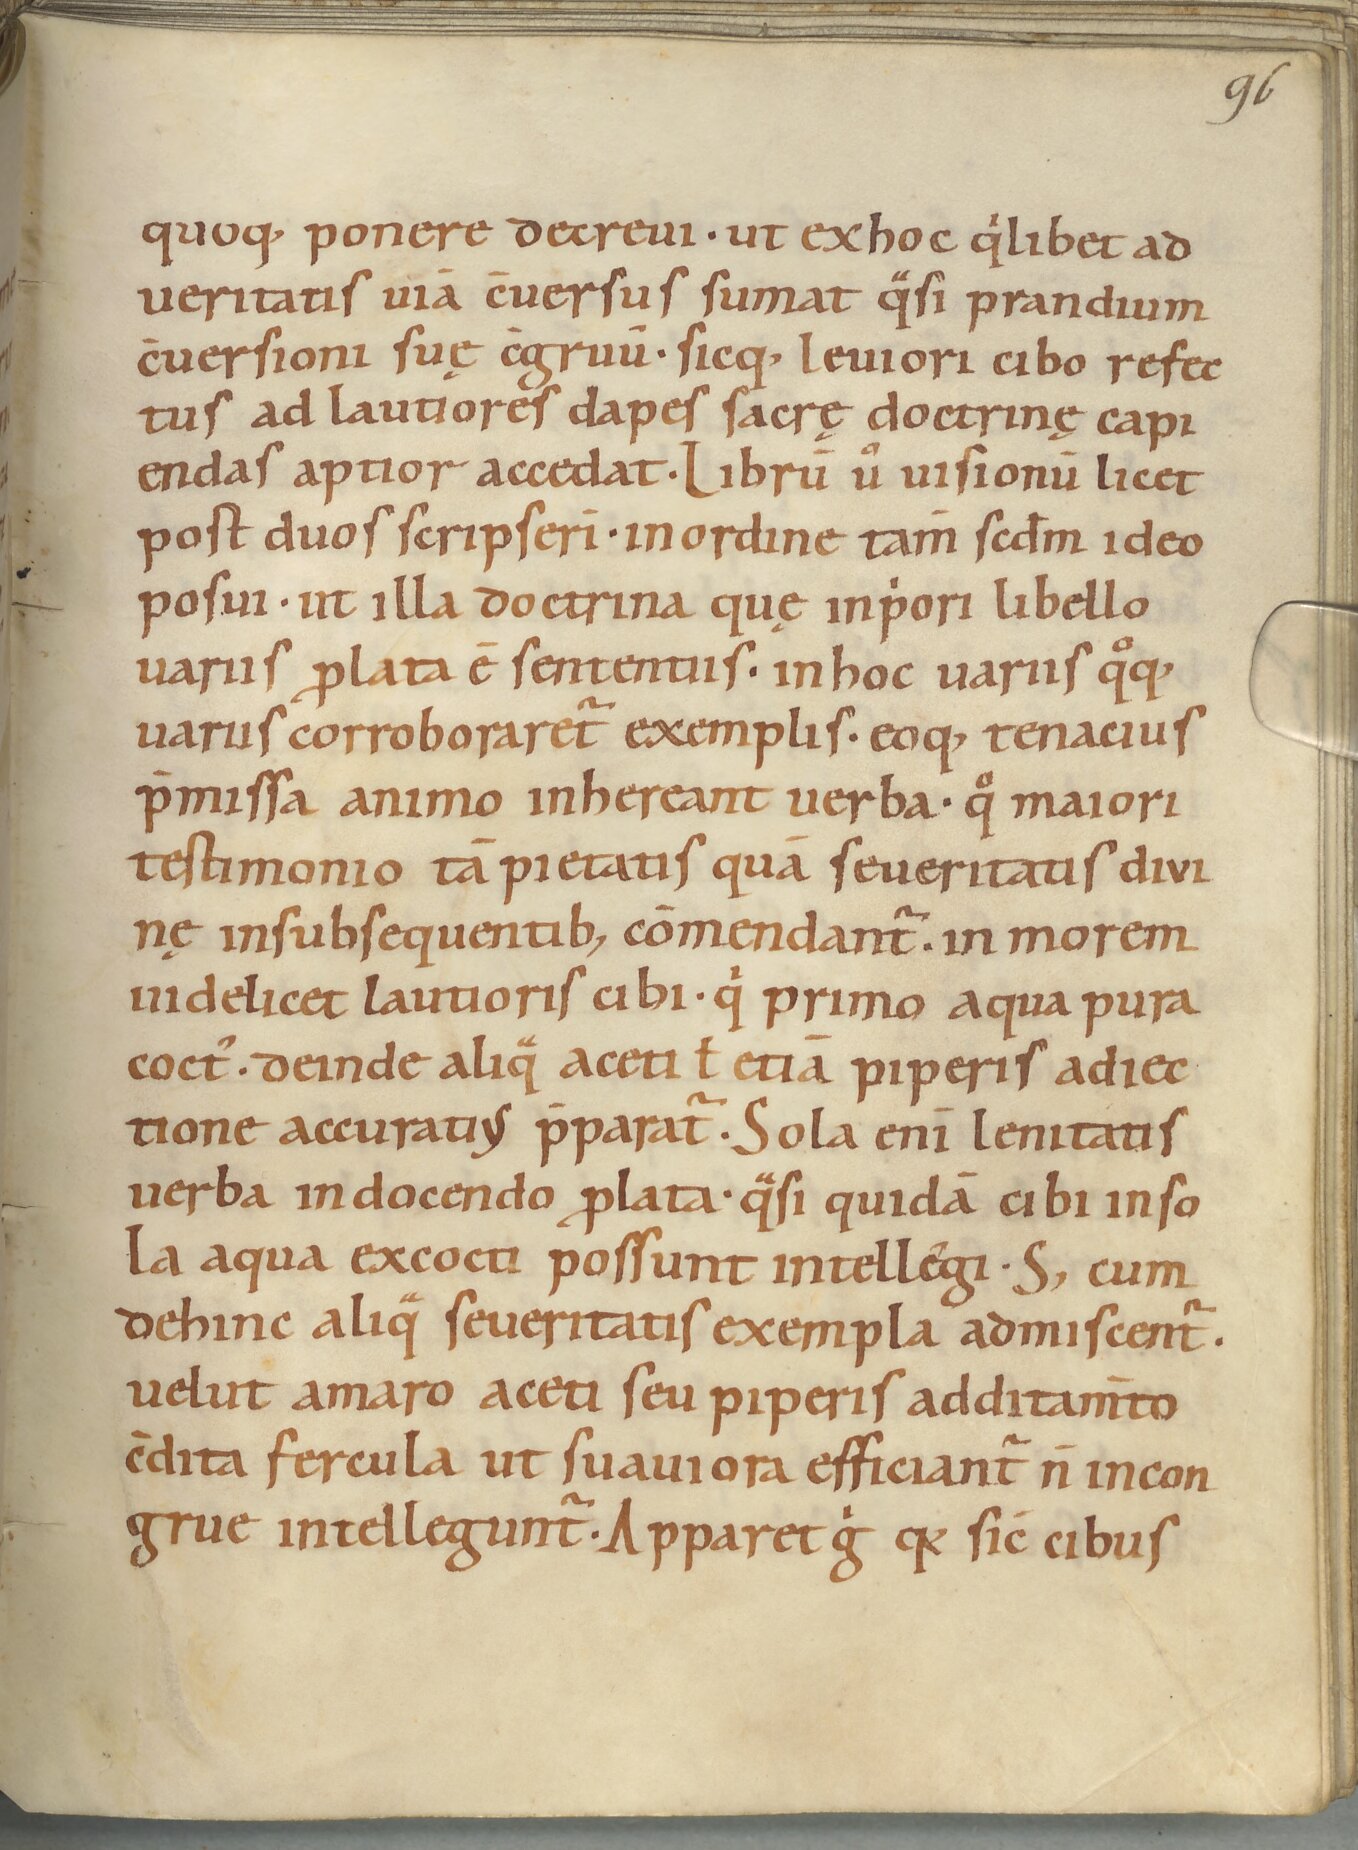 96
quoq, ponere decreui · ut exhoc qͥlibet ad
ueritatis uiā c̄uersus sumat qͣsi prandium
c̄uersioni suę c̄gruū · sicq, leuiori cibo refec
tus ad lautiores dapes sacrę doctrinę capi
endas aptior accedat · Librū uͦ uisionū licet
post duos scripserī · inordine tam̄ scd̄m ideo
posui · ut illa doctrina quę inpͥori libello
uariis ꝓlata ē sententiis · inhoc uariis qͦq,
uariis corroboraret᷑ exemplis · eoq, tenacius
p̄missa animo inhereant uerba · qͦ maiori
testimonio tā pietatis quā seueritatis divi
nę insubsequentib, cōmendant᷑ · in morem
uidelicet lautioris cibi · qͥ primo aqua pura
coct᾿ · deinde aliqͣ aceti ł etiā piperis adiec
tione accuratiꝰ p̄parat᷑ · Sola enī lenitatis
uerba indocendo ꝓlata · qͣsi quidā cibi inso
la aqua excocti possunt intellegi · S, cum
dehinc aliqͣ seueritatis exempla admiscent᷑ ·
uelut amaro aceti seu piperis additam̄to
c̄dita fercula ut suauiora efficiant᷑ n̄ incon
grue intellegunt᷑ · Apparet gͥ qꝛ sic̄ cibus